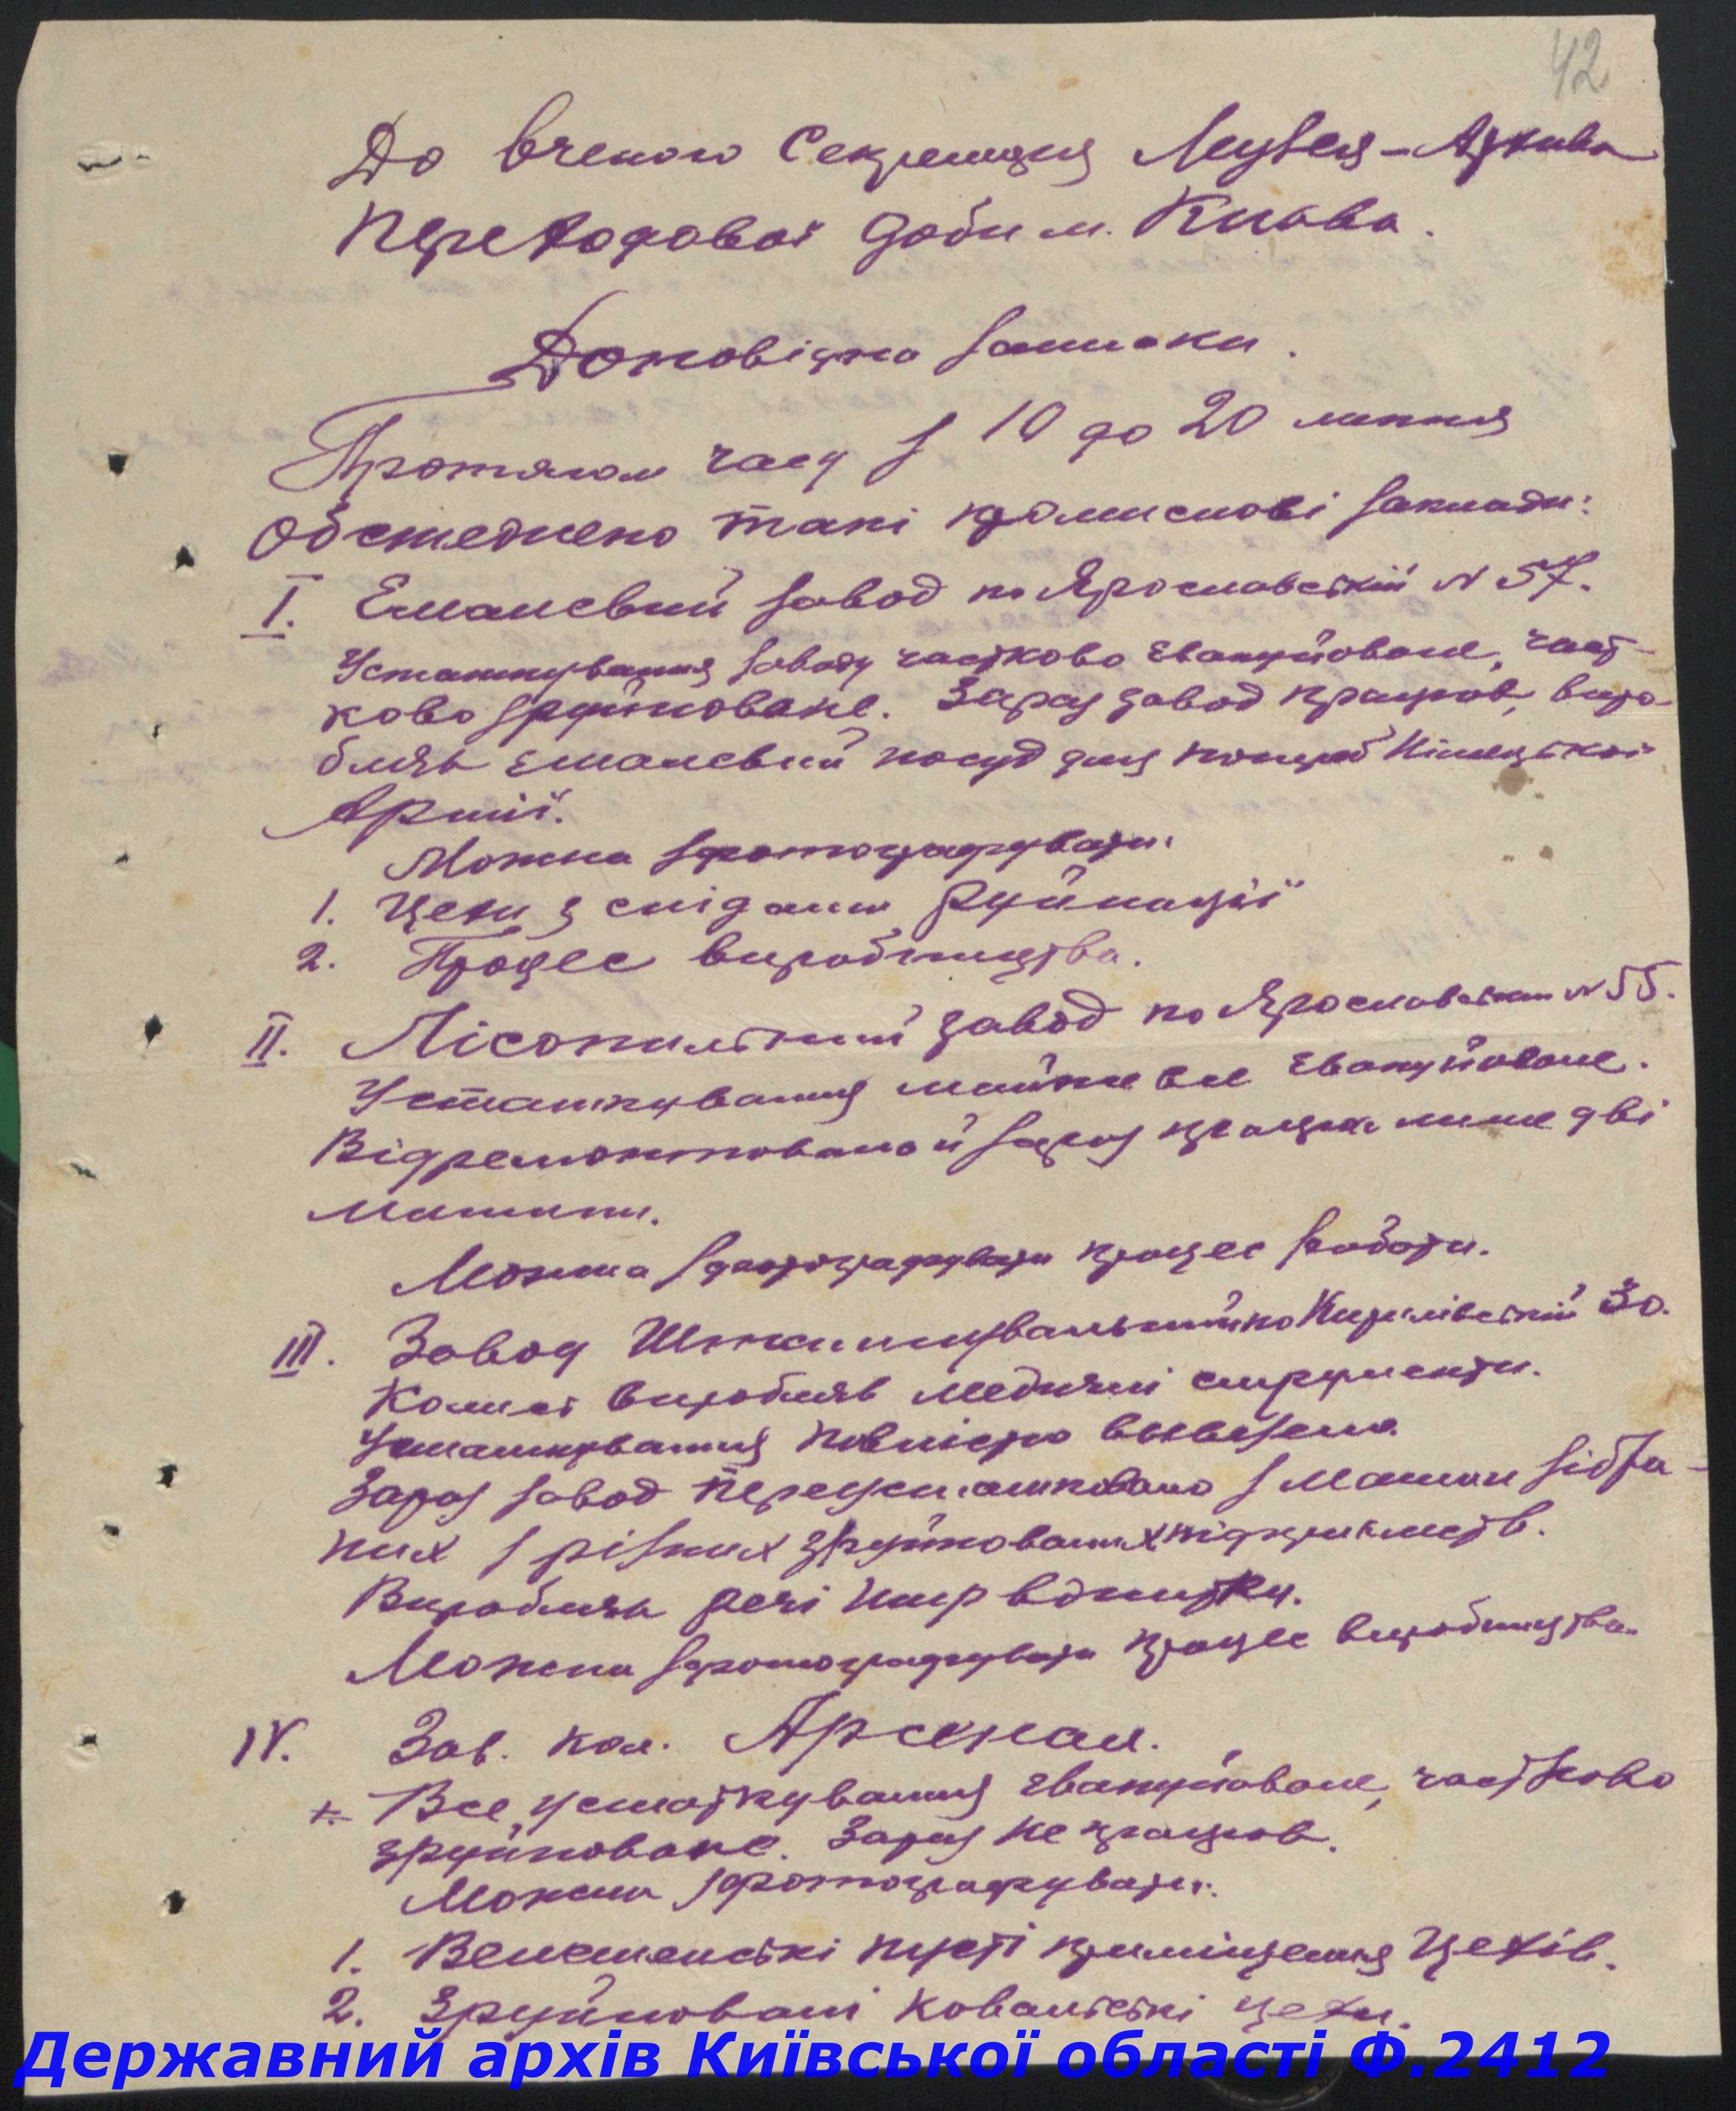 42
До вченого Секретаря Музея-Архива
Переходової доби м. Києва.
Доповідна записка.
Протягом часу з 10 до 20 липня
обстежено такі промислові заклади:
I. Емалевий завод по Ярославській N 57.
Устаткування заводу частково евакуйоване, част-
ково зруйноване. Зараз завод працює, виро-
бляє емалевий посуд для потреб Німецької
Армії.
Можна зфотографувати:
1. Цехи з слідами руйнації
2. Процес виробництва.
II. Лісопильний завод по Ярославській N 55.
Устаткування майже все евакуйоване.
Відремонтовано й зараз працює лише дві
машини.
Можна зфотографувати процес роботи.
III. Завод по Кирилівській 30.
Колись виробляв медичні струменти.
Устаткування повністю вывезено
Зараз завод переустатковано з машин зібра-
них з різних зруйнованих підприємств.
Виробляє речі шир вджитку.
Можна зфотографувати процес виробництва.
IV. Зав. кол. Арсенал.
Все устаткування евакуйоване, частково
зруйноване. Зараз не працює.
Можна зфотографувати:
1. Велетенські пусті приміщення цехів.
2. Зруйновані ковальські цехи.
Державний архів Київської області Ф.2412